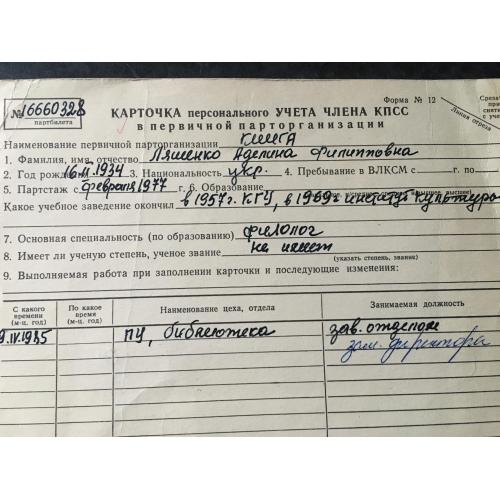 № 16660328
партбилета
Форма № 12
Линия отреза
КАРТОЧКА персонального УЧЕТА ЧЛЕНА КПСС
в первичной парторганизации
Среза
при
сняти
с уче
Наименование первичной парторганизации
1. Фамилия, имя, отчество Ляшенко Аделина Филипповна
2. Год рожд 1934 3. Национальность укр. 4. Пребывание в ВЛКСМ с г. по
5. Партстаж с февраля 1977 г. 6. Образование
Какое учебное заведение окончил в 1957 г. КГУ, в 1969 г институт культуры
7. Основная специальность (по образованию) филолог
8. Имеет ли ученую степень, ученое звание не имеет
(указать степень, звание)
9. Выполняемая работа при заполнении карточки и последующие изменения:
С какого времени (м-ц, год) По какое время (м-ц, год) Наименование цеха, отдела Занимаемая должность
9.IV.1985 библиотека зав. отделом
зам. директора